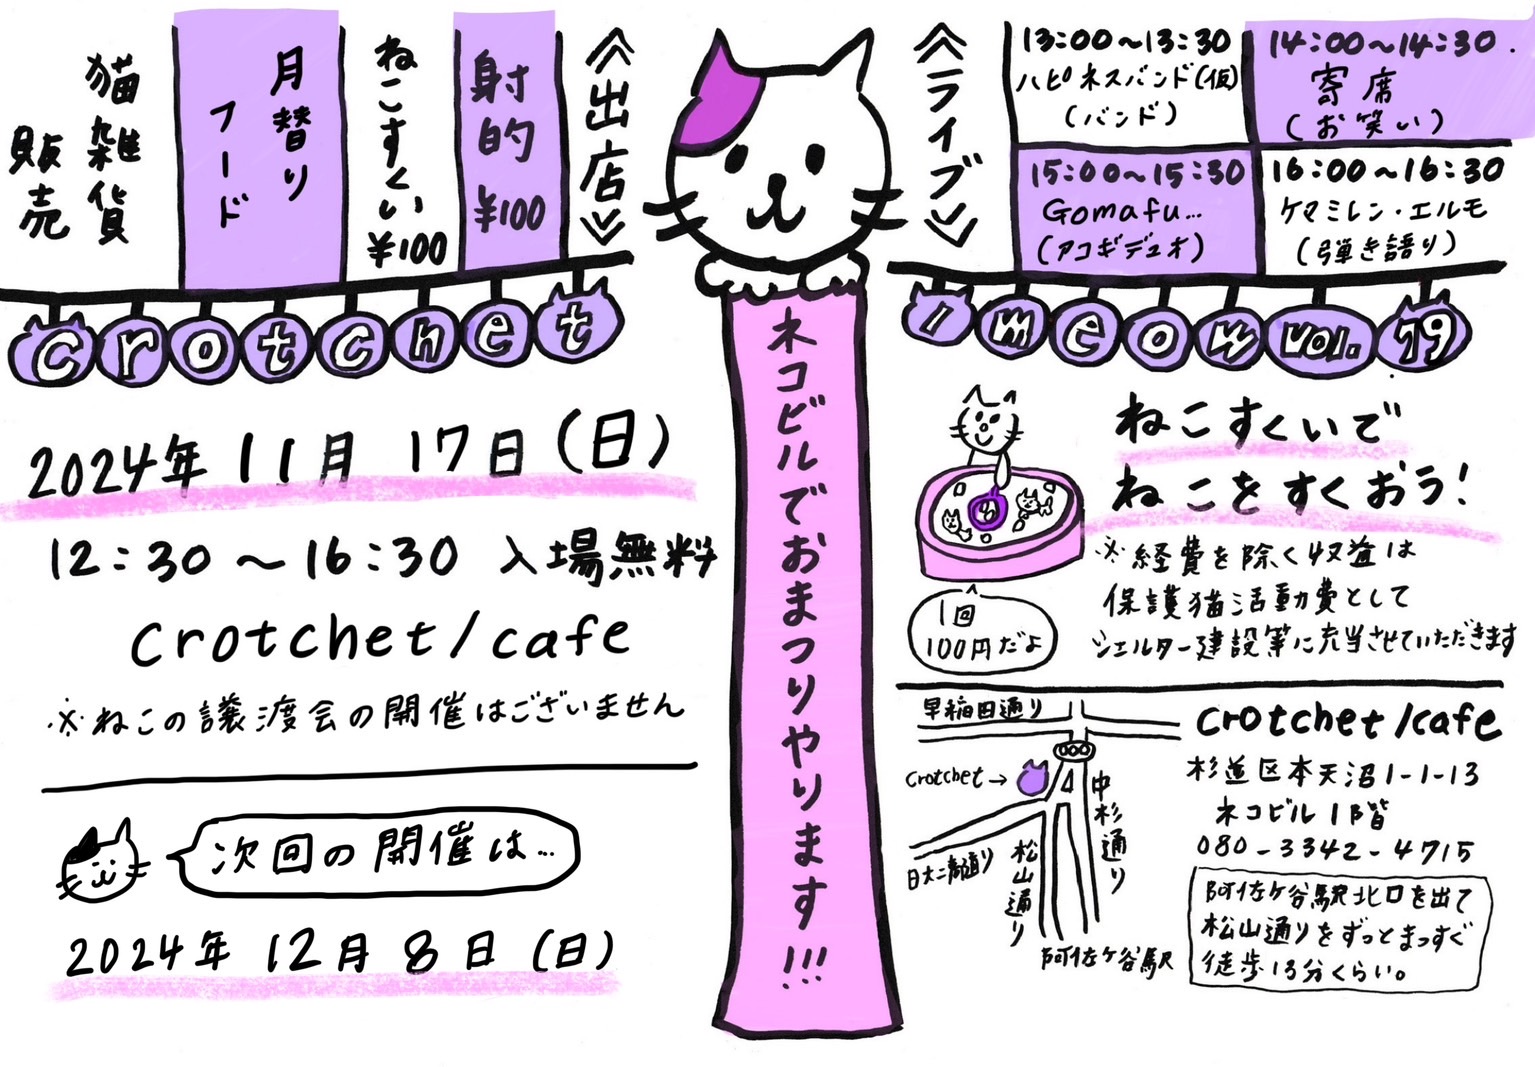 《出店》
射的
¥100
ねこすくい
¥100
月替り
フード
猫雑貨
販売
《ライブ》
13:00〜13:30
ハピネスバンド(仮)
(バンド)
14:00〜14:30.
寄席
(お笑い)
15:00〜15:30
Gomafu...
(アコギデュオ)
16:00〜16:30
ケマミレン・エルモ
(弾き語り)
crotchet
1 meow vol. 79
ネコビルでおまつりやります!!!
2024年 11月 17日(日)
12:30〜16:30 入場無料
crotchet/cafe
※ねこの譲渡会の開催はございません
次回の開催は...
2024年 12月 8日(日)
ねこすくいで
ねこをすくおう!
※経費を除く収益は
保護猫活動費として
シェルター建設等に充当させていただきます
1回
100円だよ
早稲田通り
crotchet→
中杉通り
松山通り
日大二高通り
阿佐ケ谷駅
crotchet/cafe
杉並区本天沼1-1-13
ネコビル1階
080-3342-4715
阿佐ケ谷駅北口を出て
松山通りをずっとまっすぐ
徒歩13分くらい。